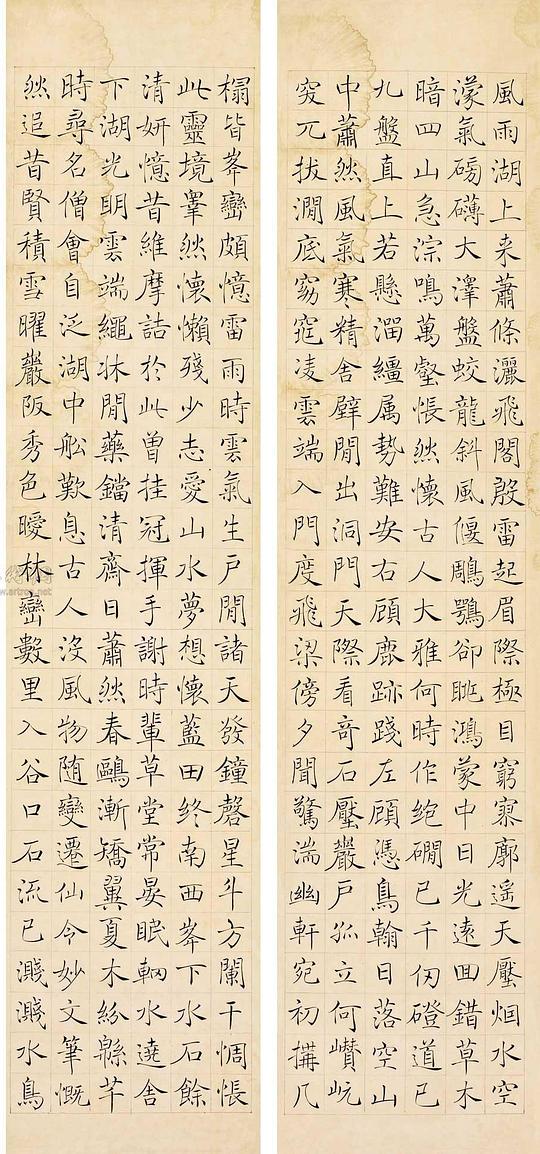 風雨湖上来蕭條灑飛閣殷雷起眉際極目窮寥廓遥天壓烟水空
濛氣磅礴大澤盤蛟龍斜風偃鵰鶚卻眺鴻蒙中日光遠囬錯草木
暗四山急淙鳴萬壑悵然懷古人大雅何時作絶磵已千仞磴道已
九盤直上若懸溜繮属勢難安右顧鹿跡踐左顧憑鳥翰日落空山
中蕭然風氣寒精舍壁閒出洞門天際看奇石壓巖户孤立何巑岏
突兀拔澗底窈窕凌雲端入門度飛梁傍夕聞驚湍幽軒宛初搆几
榻皆峯巒頗憶雷雨時雲氣生户閒諸天發鐘磬星斗方闌干惆悵
此靈境睪然懷懶殘少志愛山水夢想懷藍田終南西峯下水石餘
清妍憶昔維摩詰於此曾挂冠揮手謝時輩草堂常晏眠輞水遶舍
下湖光明雲端繩牀閒藥鐺清齋日蕭然春鷗漸矯翼夏木紛緜芊
時尋名僧會自泛湖中舩歎息古人没風物随變遷仙令妙文筆慨
然追昔賢積雪曜巖阪秀色曖林巒數里入谷口石流已濺濺水鳥